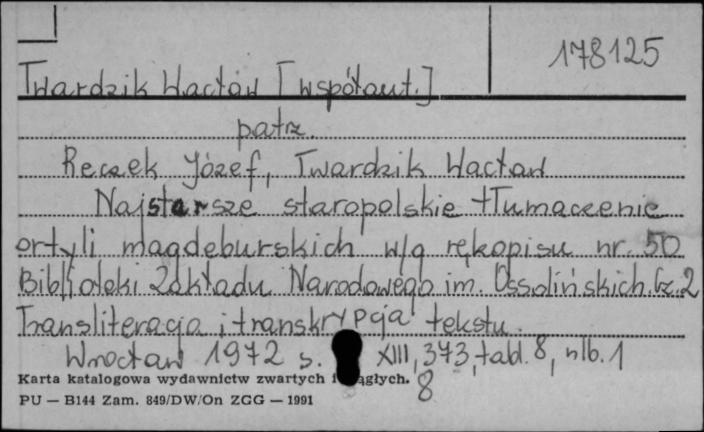 178125
Twardzik Wacław [współaut.]
patrz.
Reczek Józef, Twardzik Wacław
Najstarsze staropolskie tłumaczenie
ortyli magdeburskich w/g rękopisu nr. 50
Biblioteki Zakładu Narodowego im. Ossolińskich. Cz. 2
Transliteracja i transkrypcja tekstu.
Wrocław 1972 s. XIII, 373, tabl. 8, nlb. 1
Karta katalogowa wydawnictw zwartych i ciągłych.
8
PU — B144 Zam. 849/DW/On ZGG — 1991